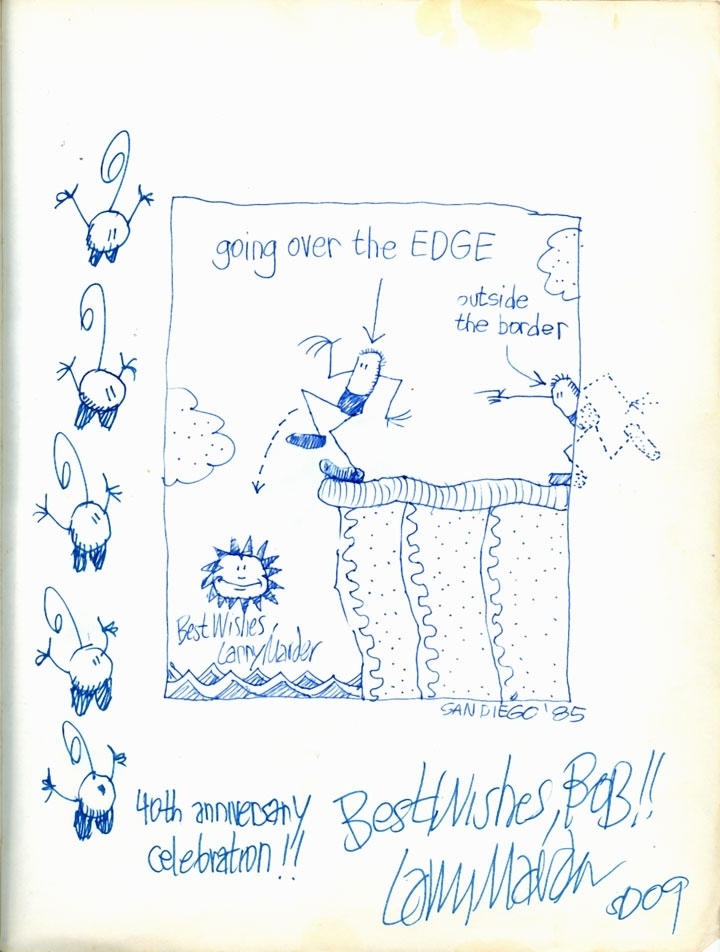 going over the EDGE
outside
the border
Best Wishes,
Larry Marder
SAN DIEGO '85
40th anniversary
celebration!!
Best Wishes, BOB!!
Larry Marder
SD09